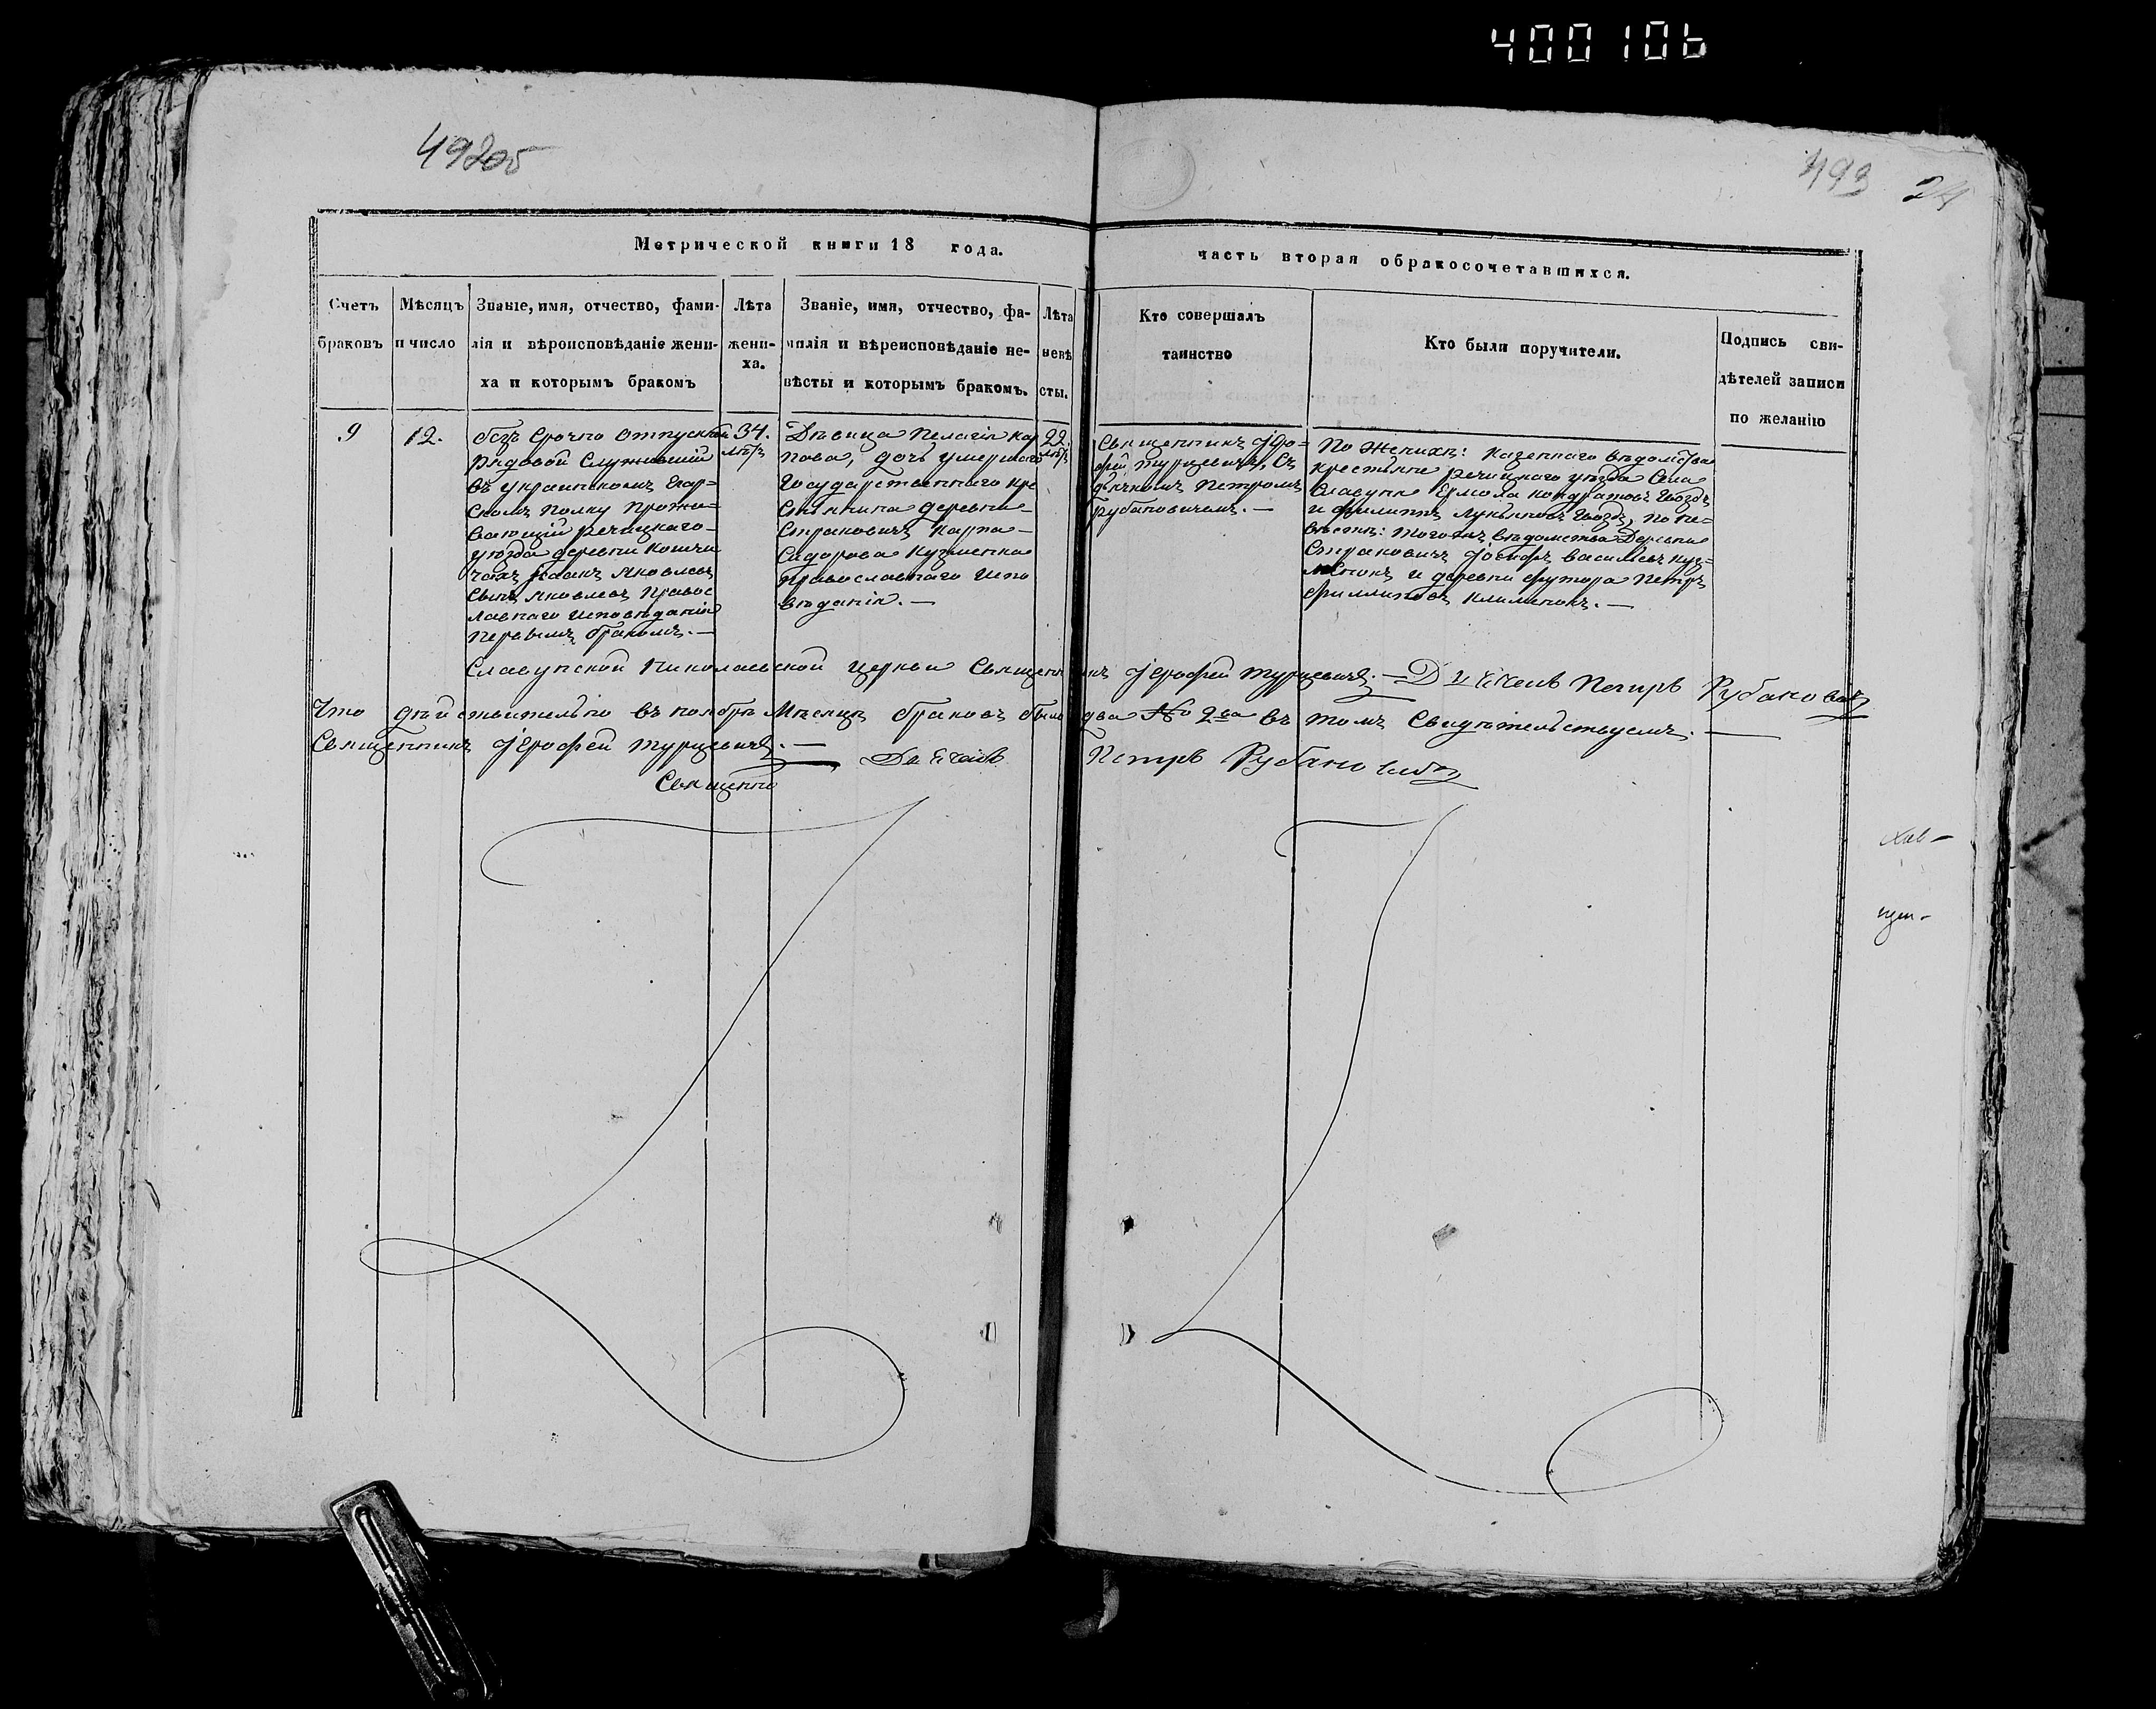 400106
492об
493 24
Метрической книги 18 года.
часть вторая обракосочетавшихся.
Счетъ
браковъ
Мѣсяцъ
и число
Званіе, имя, отчество, фами-
лія и вѣроисповѣданіе жени-
ха и которымъ бракомъ
Лѣта
жени-
ха.
Званіе, имя, отчество, фа-
милія и вѣреисповѣданіе не-
вѣсты и которымъ бракомъ.
Лѣта
невѣ
сты.
Кто совершалъ
таинство
Кто были поручители.
Подпись сви-
дѣтелей записи
по желанію
9
12.
безъ срочно отпускной
рядовой служившій
въ украинскомъ Егар=
скомъ полку прожи=
вающій речицкаго
уѣзда деревни
Исаакъ Яковлевъ
сынъ Яковлевъ Правос
лавнаго исповѣданія
первымъ бракомъ. —
34.
лѣтъ
Дѣвица Пелагія Кар
пова, дочь умершаго
Государственнаго кре
стьянина деревни
Страковичъ Карпа
Сидорова Кузменка
православнаго испо
вѣданія. —
22.
лѣтъ
Священникъ Іеро=
фей Турцевичъ, съ
дьячкомъ Петромъ
Рубановичемъ. —
По Женихѣ: казеннаго вѣдомства
крестьяне речицкаго уѣзда Села
Славуня Ермола Кондратовъ Гвоздъ
и Филиппъ Лукьяновъ Гвоздъ, по не=
вѣстѣ: того жъ вѣдомства Деревни
Страковичъ Іосифъ Васильевъ Куз=
менокъ и деревни Футора Петръ
Филлиповъ Клименокъ. —
Славунской Николаевской церкви Священникъ Іерофей Турцевичъ. — Дьячекъ Петръ Рубановичъ
Что дѣйствительно въ ноябрѣ Мѣсяцѣ браковъ было два № 2ва въ томъ Свидѣтельствуемъ. —
Священникъ Іерофей Турцевичъ. — Дьячекъ Петръ Рубановичъ
Священни